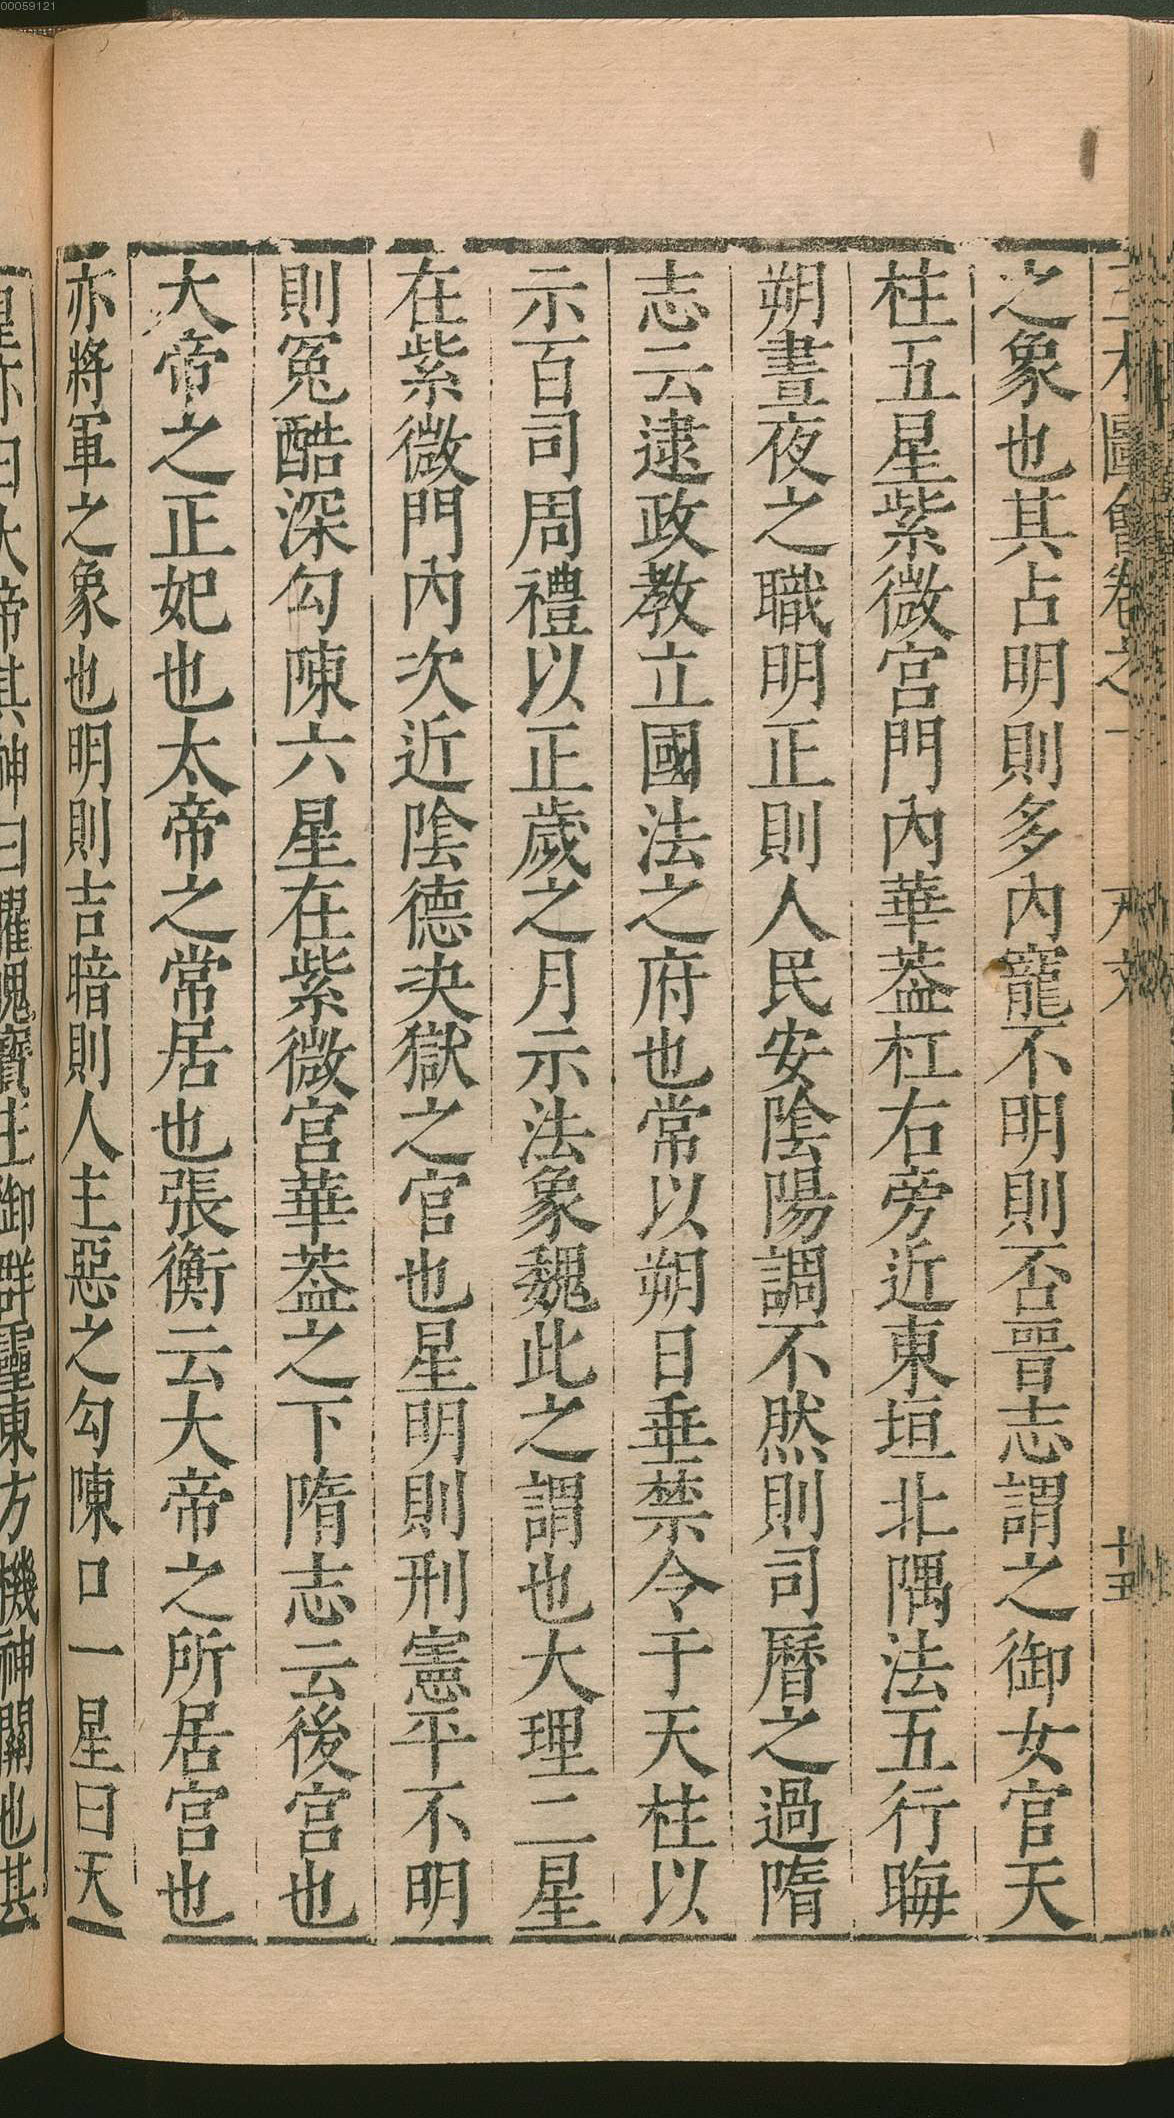 00059121
三才圖會卷之一 天文 十五
之象也其占明則多內寵不明則否晉志謂之御女官天
柱五星紫微宮門內華葢杠右旁近東垣北隅法五行晦
朔晝夜之職明正則人民安陰陽調不然則司曆之過隋
志云逮政教立國法之府也常以朔日垂禁令于天柱以
示百司周禮以正歲之月示法象魏此之謂也大理二星
在紫微門內次近陰德决獄之官也星明則刑憲平不明
則冤酷深勾陳六星在紫微宮華葢之下隋志云後宮也
大帝之正妃也太帝之常居也張衡云大帝之所居宮也
亦將軍之象也明則吉暗則人主惡之勾陳口一星曰天
皇亦曰大帝其神曰耀魄寶主御群靈東方機神關也其